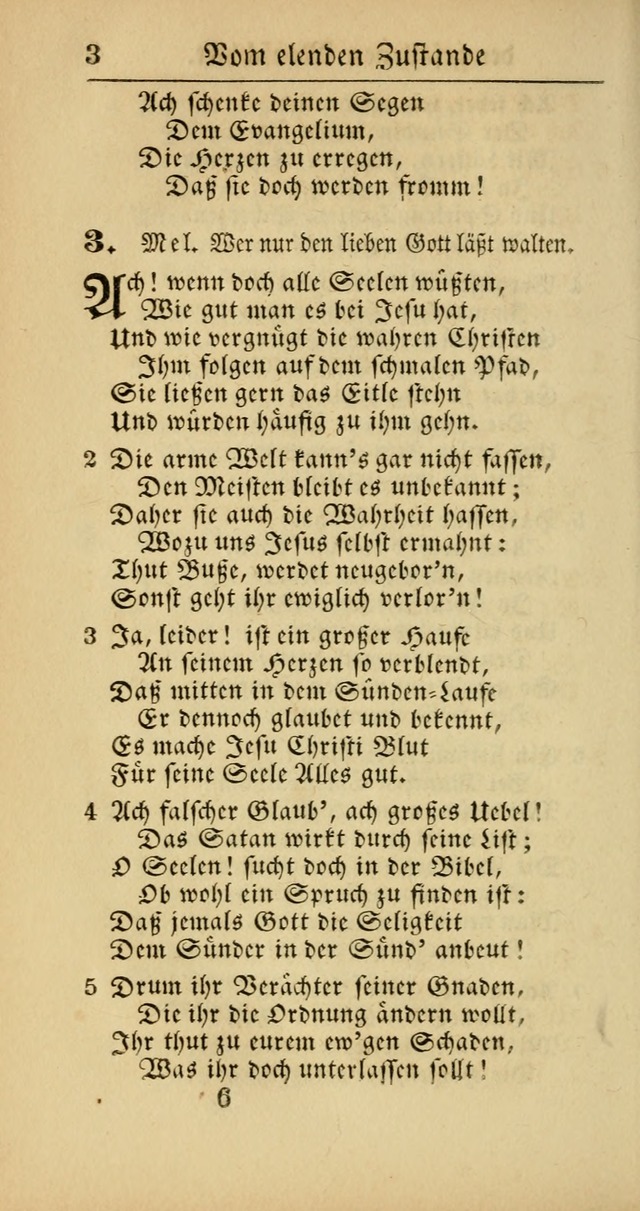 3 Vom elenden Zustande
Ach schenke deinen Segen
Dem Evangelium,
Die Herzen zu erregen,
Daß sie doch werden fromm!
3. Mel. Wer nur den lieben Gott läßt walten.
Ach! wenn doch alle Seelen wüßten,
Wie gut man es bei Jesu hat,
Und wie vergnügt die wahren Christen
Ihm folgen auf dem schmalen Pfad,
Sie ließen gern das Eitle stehn
Und würden häufig zu ihm gehn.
2 Die arme Welt kann's gar nicht fassen,
Den Meisten bleibt es unbekannt;
Daher sie auch die Wahrheit hassen,
Wozu uns Jesus selbst ermahnt:
Thut Buße, werdet neugebor'n,
Sonst geht ihr ewiglich verlor'n!
3 Ja, leider! ist ein großer Haufe
An seinem Herzen so verblendt,
Daß mitten in dem Sünden-Laufe
Er dennoch glaubet und bekennt,
Es mache Jesu Christi Blut
Für seine Seele Alles gut.
4 Ach falscher Glaub', ach großes Uebel!
Das Satan wirkt durch seine List;
O Seelen! sucht doch in der Bibel,
Ob wohl ein Spruch zu finden ist:
Daß jemals Gott die Seligkeit
Dem Sünder in der Sünd' anbeut!
5 Drum ihr Verächter seiner Gnaden,
Die ihr die Ordnung ändern wollt,
Ihr thut zu eurem ew'gen Schaden,
Was ihr doch unterlassen sollt!
6